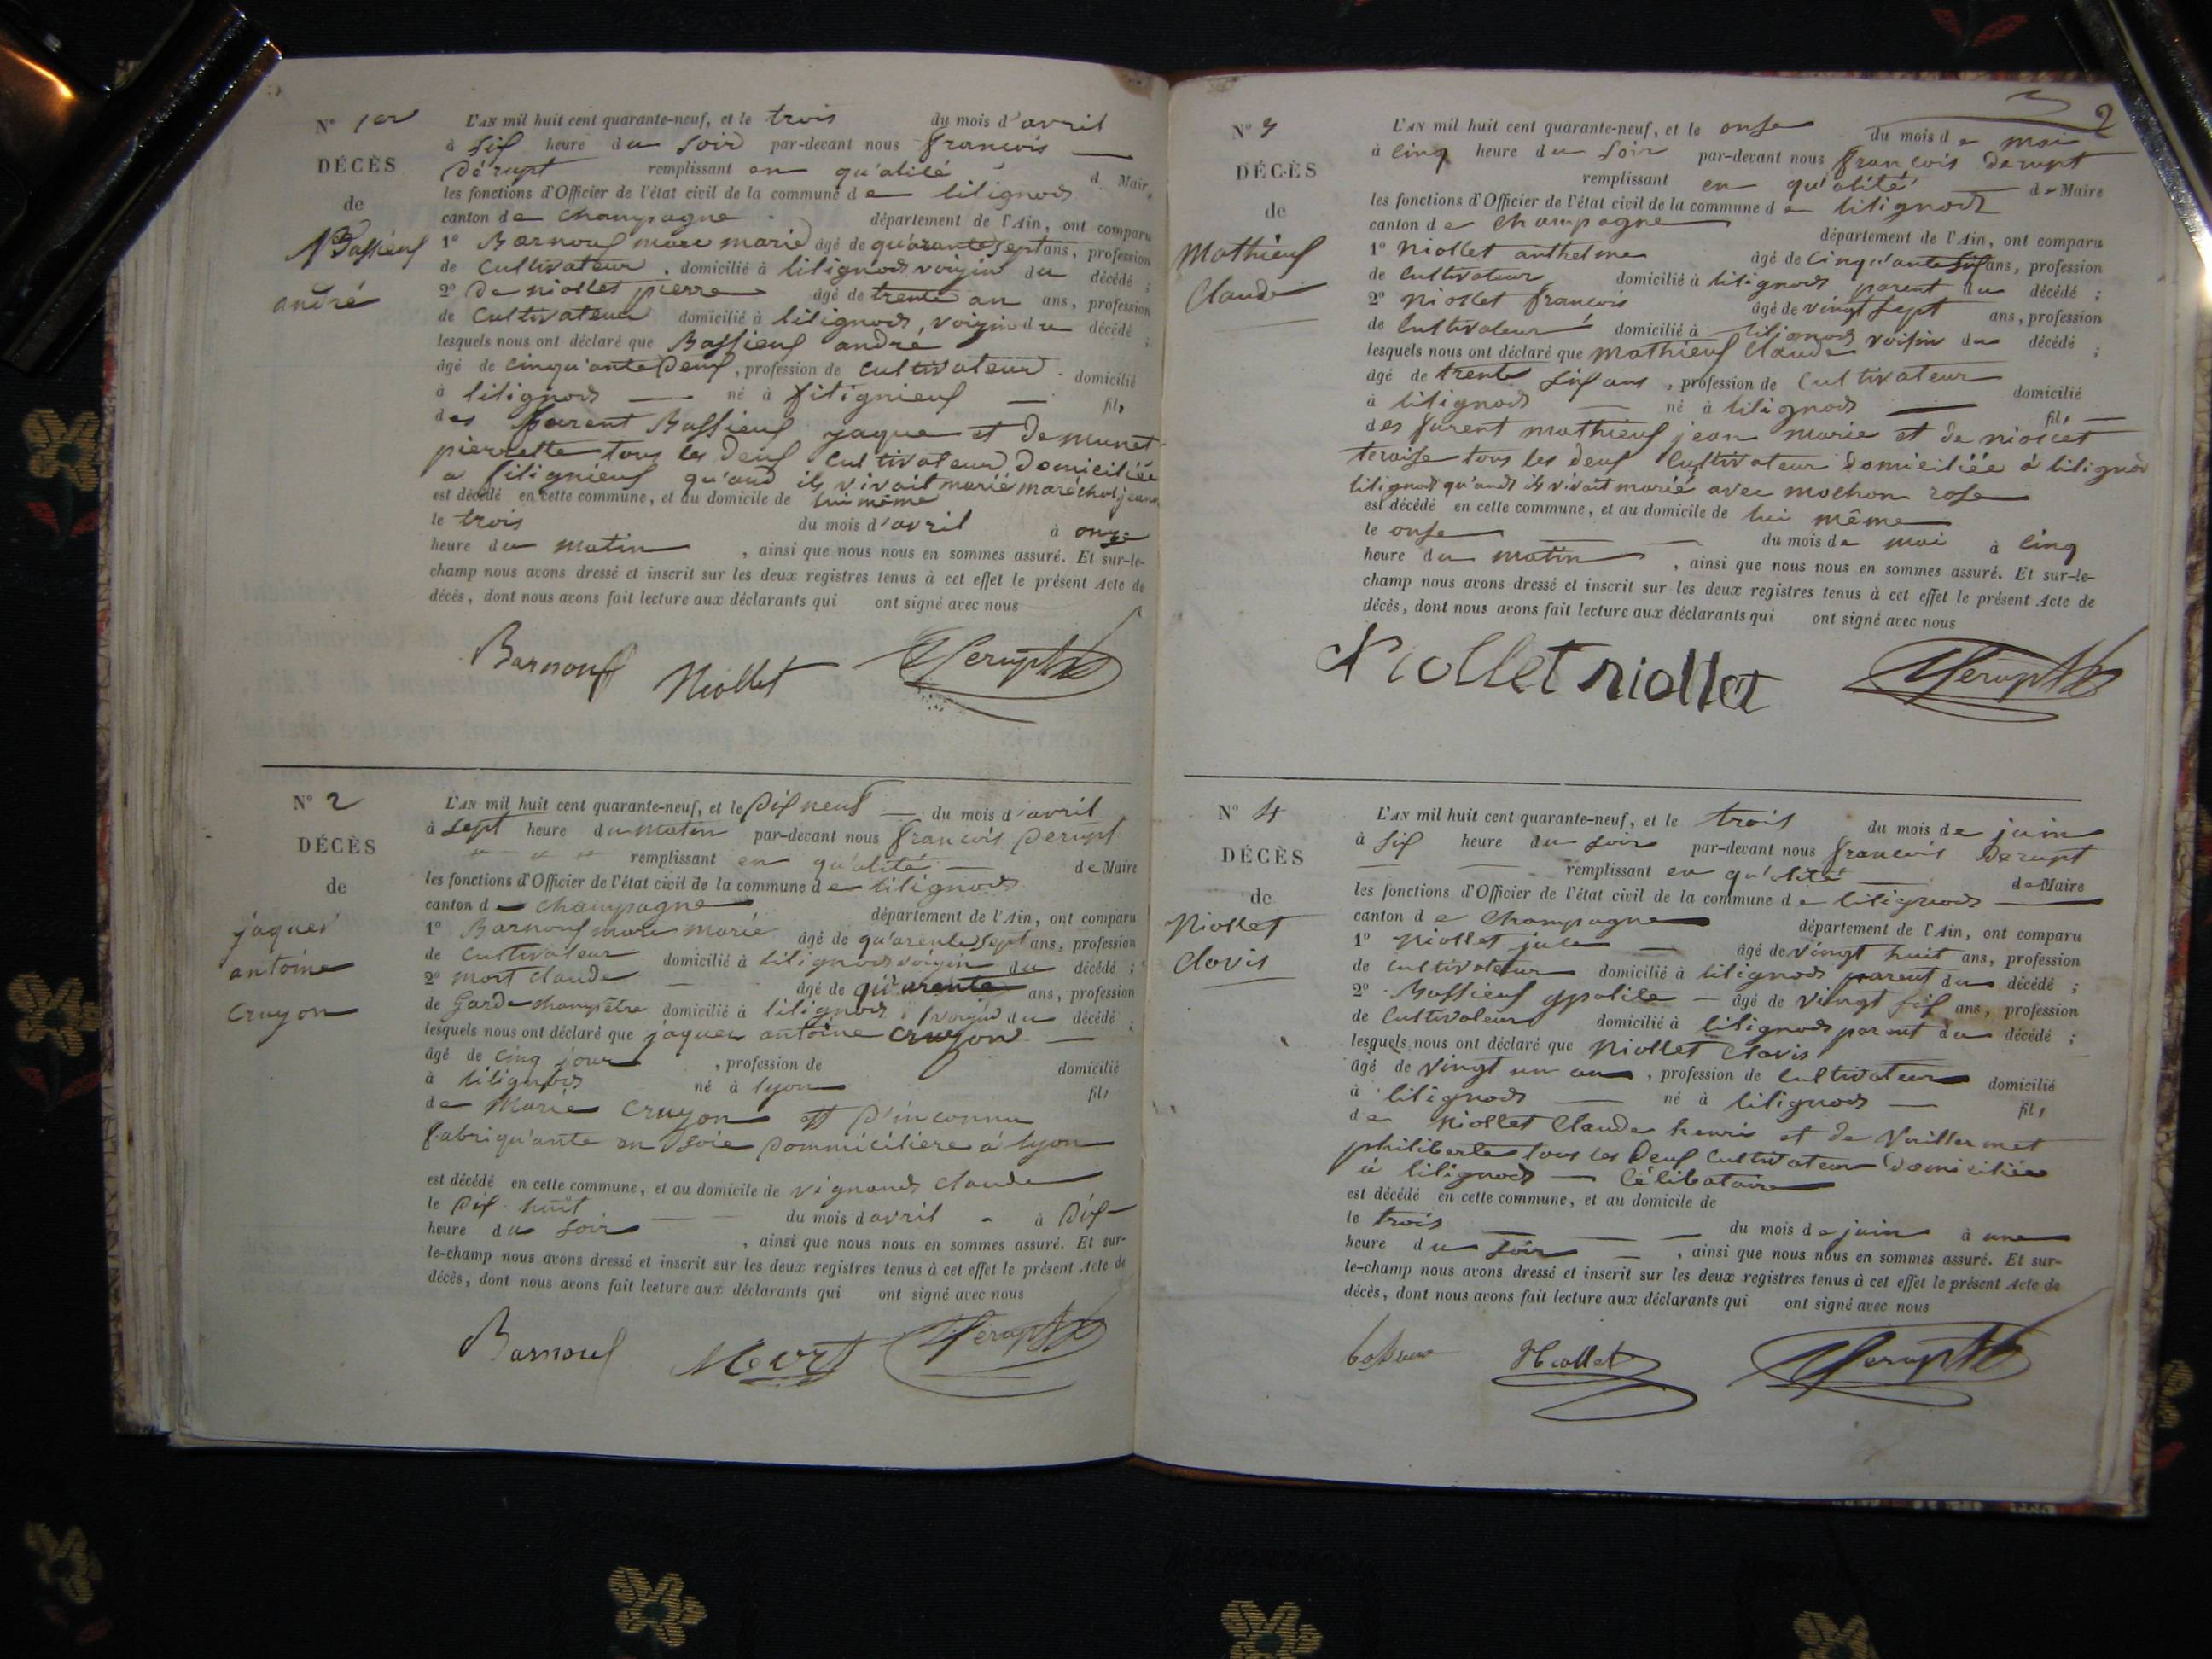 N° 1er
DÉCÈS
de
Bassieux
andré
L'AN mil huit cent quarante-neuf, et le trois du mois d'avril
à six heure du soir par-devant nous françois
Dérupt remplissant en qu'alité d. Maire
les fonctions d'Officier de l'état civil de la commune de lilignod
canton de champagne département de l'Ain, ont comparu
1° Barnoux marc marié âgé de quarante sept ans, profession
de Cultivateur, domicilié à lilignod voizin du décédé ;
2° De niollet pierre âgé de trente an ans, profession
de Cultivateur domicilié à lilignod, voizin du décédé ;
lesquels nous ont déclaré que Bassieux andre
âgé de cinqu'ante Deux, profession de Cultivateur domicilié
à lilignod né à fitignieux fils
des parent Bassieux jaque et De munet
pierrette tous les deux Cultivateur Domiciliée
a fitignieux qu'and ils vivait marié maréchal jeanne
est décédé en cette commune, et au domicile de lui même
le trois du mois d'avril à onze
heure du matin, ainsi que nous nous en sommes assuré. Et sur-le-
champ nous avons dressé et inscrit sur les deux registres tenus à cet effet le présent Acte de
décès, dont nous avons fait lecture aux déclarants qui ont signé avec nous
Barnoux Niollet Derupt
N° 2
DÉCÈS
de
jaques
antoine
Cruyon
L'AN mil huit cent quarante-neuf, et le Dix neuf du mois d'avril
à sept heure du matin par-devant nous françois Derupt
remplissant en qu'alité de Maire
les fonctions d'Officier de l'état civil de la commune de lilignod
canton de champagne département de l'Ain, ont comparu
1° Barnoux marc marié âgé de qu'arente sept ans, profession
de Cultivateur domicilié à lilignod voizin du décédé ;
2° mort Claude âgé de qu'arente ans, profession
de Garde champêtre domicilié à lilignod, voizin du décédé ;
lesquels nous ont déclaré que jaques antoine Cruyon
âgé de cinq jour, profession de domicilié
à lilignod né à lyon fils
de Marie Cruyon et D'inconnu
fabriqu'ante en soie Dommiciliere à lyon
est décédé en cette commune, et au domicile de vignand Claude
le Dix huit du mois d'avril à Dix
heure du soir, ainsi que nous nous en sommes assuré. Et sur-
le-champ nous avons dressé et inscrit sur les deux registres tenus à cet effet le présent Acte de
décès, dont nous avons fait lecture aux déclarants qui ont signé avec nous
Barnoux Mort Derupt
2
N° 3
DÉCÈS
de
Mathieux
Claude
L'AN mil huit cent quarante-neuf, et le onse du mois de mai
à cinq heure du soir par-devant nous françois Derupt
remplissant en qu'alité de Maire
les fonctions d'Officier de l'état civil de la commune de lilignod
canton de champagne département de l'Ain, ont comparu
1° Niollet anthelme âgé de cinqu'ante six ans, profession
de Cultivateur domicilié à lilignod parent du décédé ;
2° Niollet françois âgé de vingt sept ans, profession
de Cultivateur domicilié à lilignod voisin du décédé ;
lesquels nous ont déclaré que mathieux Claude
âgé de trente six ans, profession de Cultivateur domicilié
à lilignod né à lilignod fils
des parent mathieux jean marie et de niollet
teraise tous les deux Cultivateur Domiciliée à lilignod
lilignod qu'and ils vivait marié avec mochon rose
est décédé en cette commune, et au domicile de lui même
le onse du mois de mai à cinq
heure du matin, ainsi que nous nous en sommes assuré. Et sur-le-
champ nous avons dressé et inscrit sur les deux registres tenus à cet effet le présent Acte de
décès, dont nous avons fait lecture aux déclarants qui ont signé avec nous
Niollet niollet Derupt
N° 4
DÉCÈS
de
Niollet
Clovis
L'AN mil huit cent quarante-neuf, et le trois du mois de juin
à six heure du soir par-devant nous françois Derupt
remplissant en qu'alité de Maire
les fonctions d'Officier de l'état civil de la commune de lilignod
canton de Champagne département de l'Ain, ont comparu
1° Niollet jule âgé de vingt huit ans, profession
de cultivateur domicilié à lilignod parent du décédé ;
2° Bassieux ypolite âgé de vingt six ans, profession
de Cultivateur domicilié à lilignod parent du décédé ;
lesquels nous ont déclaré que Niollet Clovis
âgé de vingt un ans, profession de Cultivateur domicilié
à lilignod né à lilignod fils
de Niollet Claude henri et de Vuillermet
philiberte tous les Deux Cultivateur Domiciliée
à lilignod Célibataire
est décédé en cette commune, et au domicile de
le trois du mois de juin à une
heure du soir, ainsi que nous nous en sommes assuré. Et sur-
le-champ nous avons dressé et inscrit sur les deux registres tenus à cet effet le présent Acte de
décès, dont nous avons fait lecture aux déclarants qui ont signé avec nous
Niollet Derupt